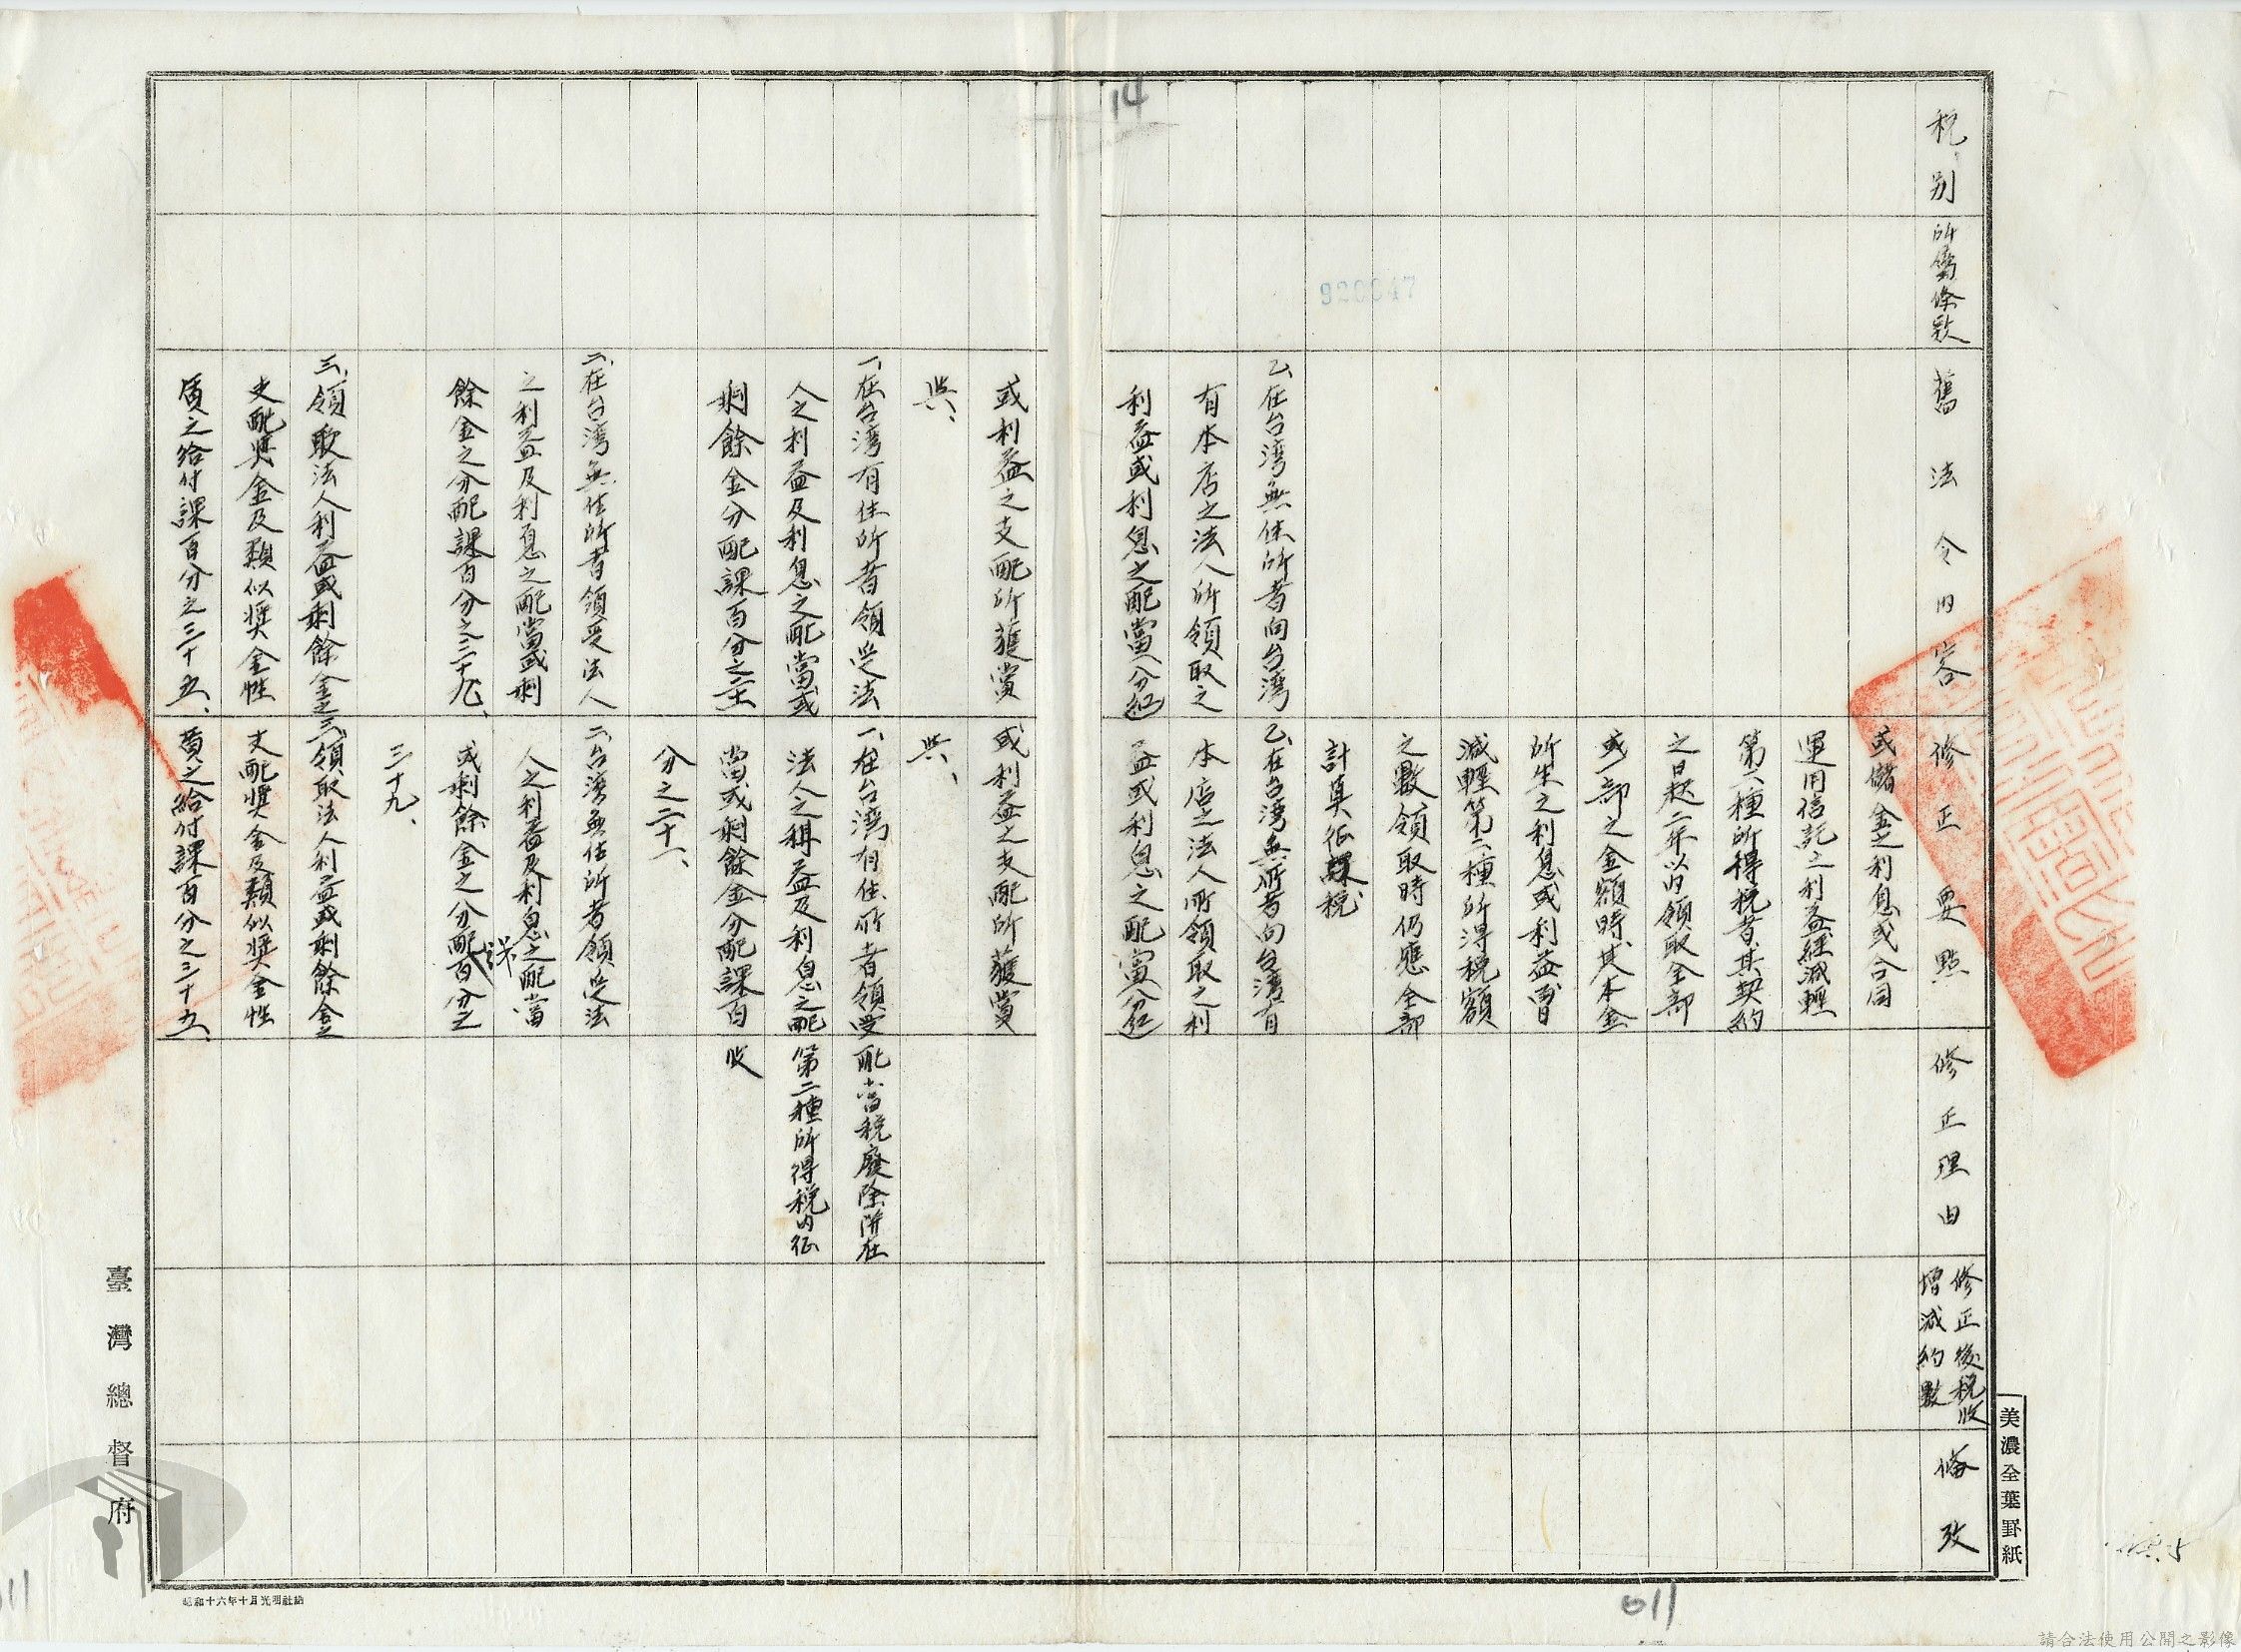 14
稅別
所屬條欵
舊法令內容
修正要點
修正理由
修正後稅收
增減約數
備攷
或儲金之利息或合同
運用信託之利益經減輕
第二種所得稅者其契約
之日起二年以內領取全部
或一部之金額時其本金
所生之利息或利益曾
減輕第二種所得稅額
之數領取時仍應全部
計算征課稅
920047
乙、在台湾無住所者向台湾
有本店之法人所領取之
利益或利息之配當、分紅
乙、在台湾無所者向台湾有
本店之法人所領取之利
益或利息之配當、分紅
或利益之支配所獲賞
與、
或利益之支配所獲賞
與、
一、在台湾有住所者領受法
人之利益及利息之配當或
剩餘金分配課百分之二十
一、在台湾有住所者領受
法人之利益及利息之配
當或剩餘金分配課百
分之二十一、
配當稅廢除併在
第二種所得稅內征
收
二、在台湾無住所者領受法人
之利益及利息之配當或剩
餘金之分配課百分之三十九、
二、台湾無住所者領受法
人之利益及利息之配當
或剩餘金之分配課百分之
三十九、
三、領取法人利益或剩餘金之
支配獎金及類似獎金性
質之給付課百分之三十五、
三、領取法人利益或剩餘金之
支配獎金及類似獎金性
質之給付課百分之三十五、
臺灣總督府
美濃全葉罫紙
昭和十六年十月光明社納
011
11
請合法使用公開之影像